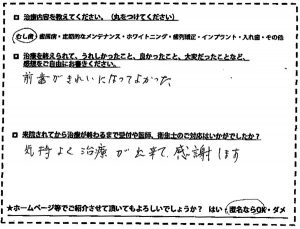 ■ 治療内容を教えてください。(丸をつけてください)
むし歯・歯周病・定期的なメンテナンス・ホワイトニング・歯列矯正・インプラント・入れ歯・その他
■ 治療を終えられて、うれしかったこと、良かったこと、大変だったことなど、
感想をご自由にお書きください。
前歯がきれいになってよかった
■ 来院されてから治療が終わるまで受付や医師、衛生士のご対応はいかがでしたか?
気持よく治療が出来て、感謝します
★ホームページ等でご紹介させて頂いてもよろしいでしょうか? はい・匿名ならOK・ダメ